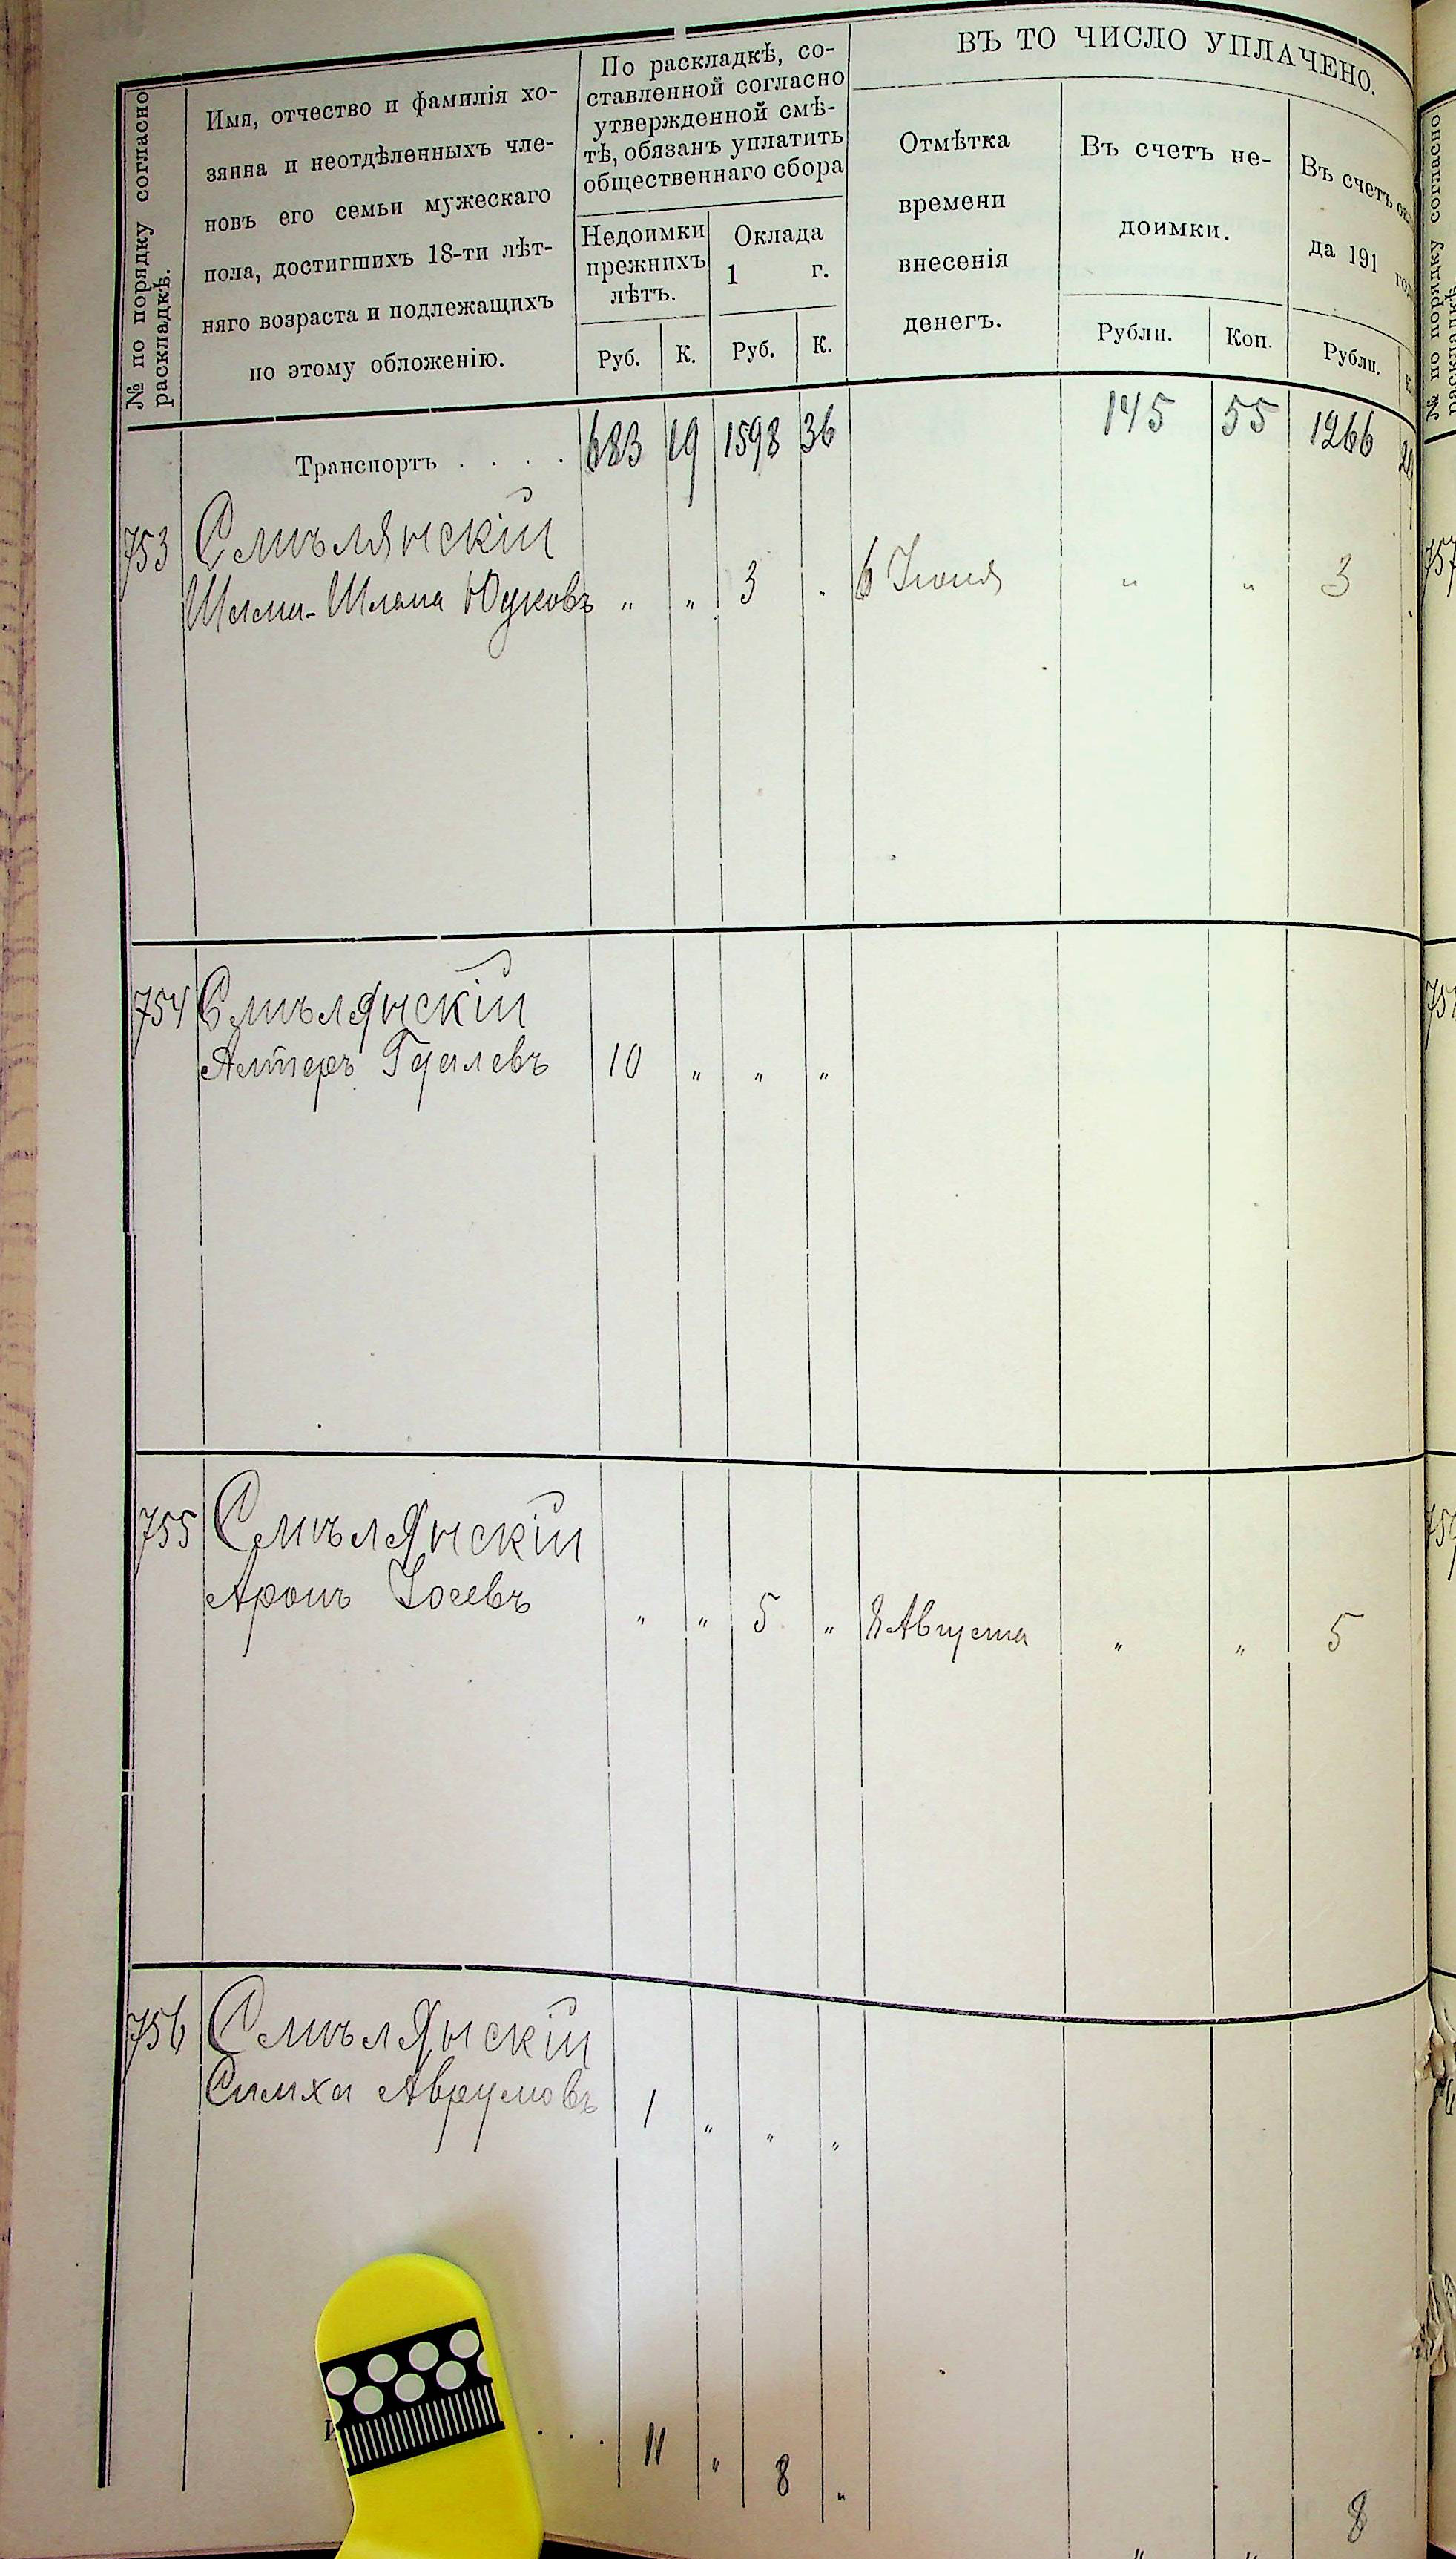 ВЪ ТО ЧИСЛО УПЛАЧЕНО.
№ по порядку согласно
раскладкѣ.
Имя, отчество и фамилія хо-
зяина и неотдѣленныхъ чле-
новъ его семьи мужескаго
пола, достигшихъ 18-ти лѣт-
няго возраста и подлежащихъ
по этому обложенію.
По раскладкѣ, со-
ставленной согласно
утвержденной смѣ-
тѣ, обязанъ уплатить
общественнаго сбора
Недоимки
прежнихъ
лѣтъ.
Оклада
1 г.
Отмѣтка
времени
внесенія
денегъ.
Въ счетъ не-
доимки.
Въ счетъ
да 191
Руб. К. Руб. К. Рубли. Коп. Рубли.
Транспортъ . . . . 683 19 1598 36 145 55 1266
753 Смѣлянскій
Шлема-Шлема Юдковъ " " 3 . 6 Іюня " " 3
754 Смѣлянскій
Алтеръ Гдалевъ 10 " " "
755 Смѣлянскій
Аронъ Іосевъ " " 5 " 8 Августа " " 5
756 Смѣлянскій
Симха Аврумовъ 1 " " "
. . . 11 " 8 " " " 8